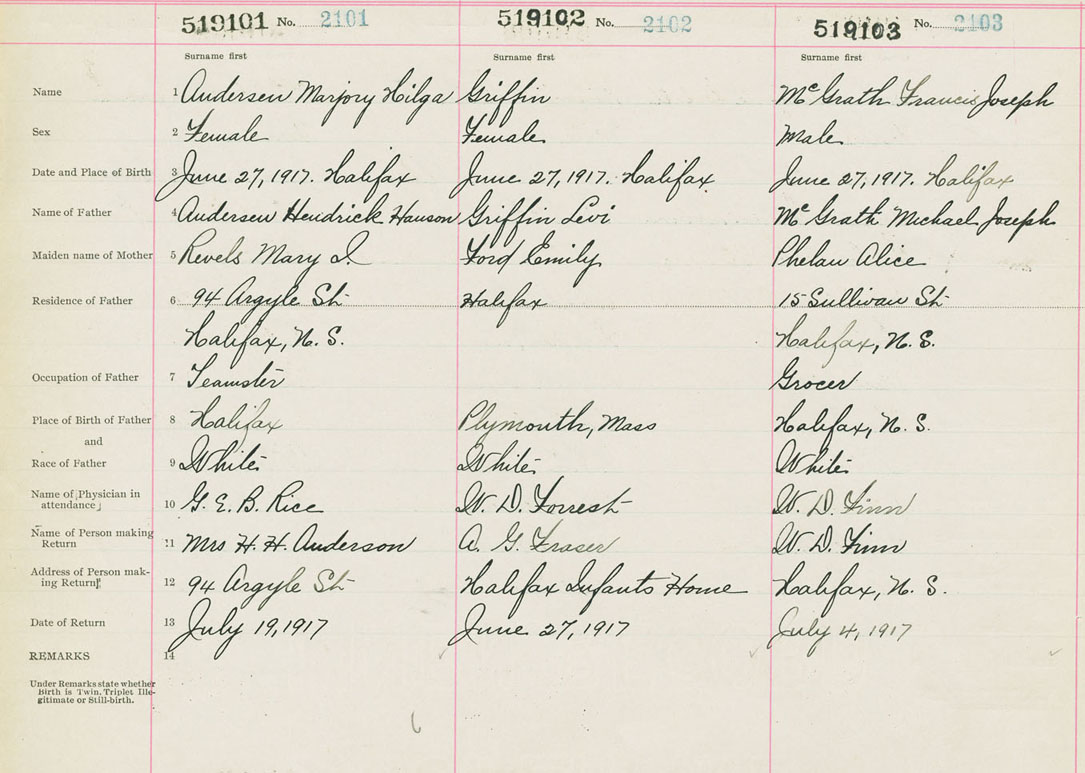 519101 No. 2101 519102 No. 2102 519103 No. 2103
Surname first Surname first Surname first
Name 1 Andersen Marjory Hilga Griffin Mc Grath Francis Joseph
Sex 2 Female Female Male
Date and Place of Birth 3 June 27, 1917. Halifax June 27, 1917. Halifax June 27, 1917. Halifax
Name of Father 4 Andersen Hendrick Hanson Griffin Levi Mc Grath Michael Joseph
Maiden name of Mother 5 Revels Mary I. Ford Emily Phelan Alice
Residence of Father 6 94 Argyle St Halifax 15 Sullivan St
Halifax, N. S. Halifax, N. S.
Occupation of Father 7 Teamster Grocer
Place of Birth of Father 8 Halifax Plymouth, Mass Halifax, N. S.
and
Race of Father 9 White White White
Name of Physician in
attendance 10 G. E. B. Rice W. D. Forrest W. D. Finn
Name of Person making
Return 11 Mrs H. H. Anderson A. G. Fraser W. D. Finn
Address of Person mak-
ing Return 12 94 Argyle St Halifax Infants Home Halifax, N. S.
Date of Return 13 July 19, 1917 June 27, 1917 July 4, 1917
REMARKS 14
Under Remarks state whether
Birth is Twin, Triplet Ille-
gitimate or Still-birth.